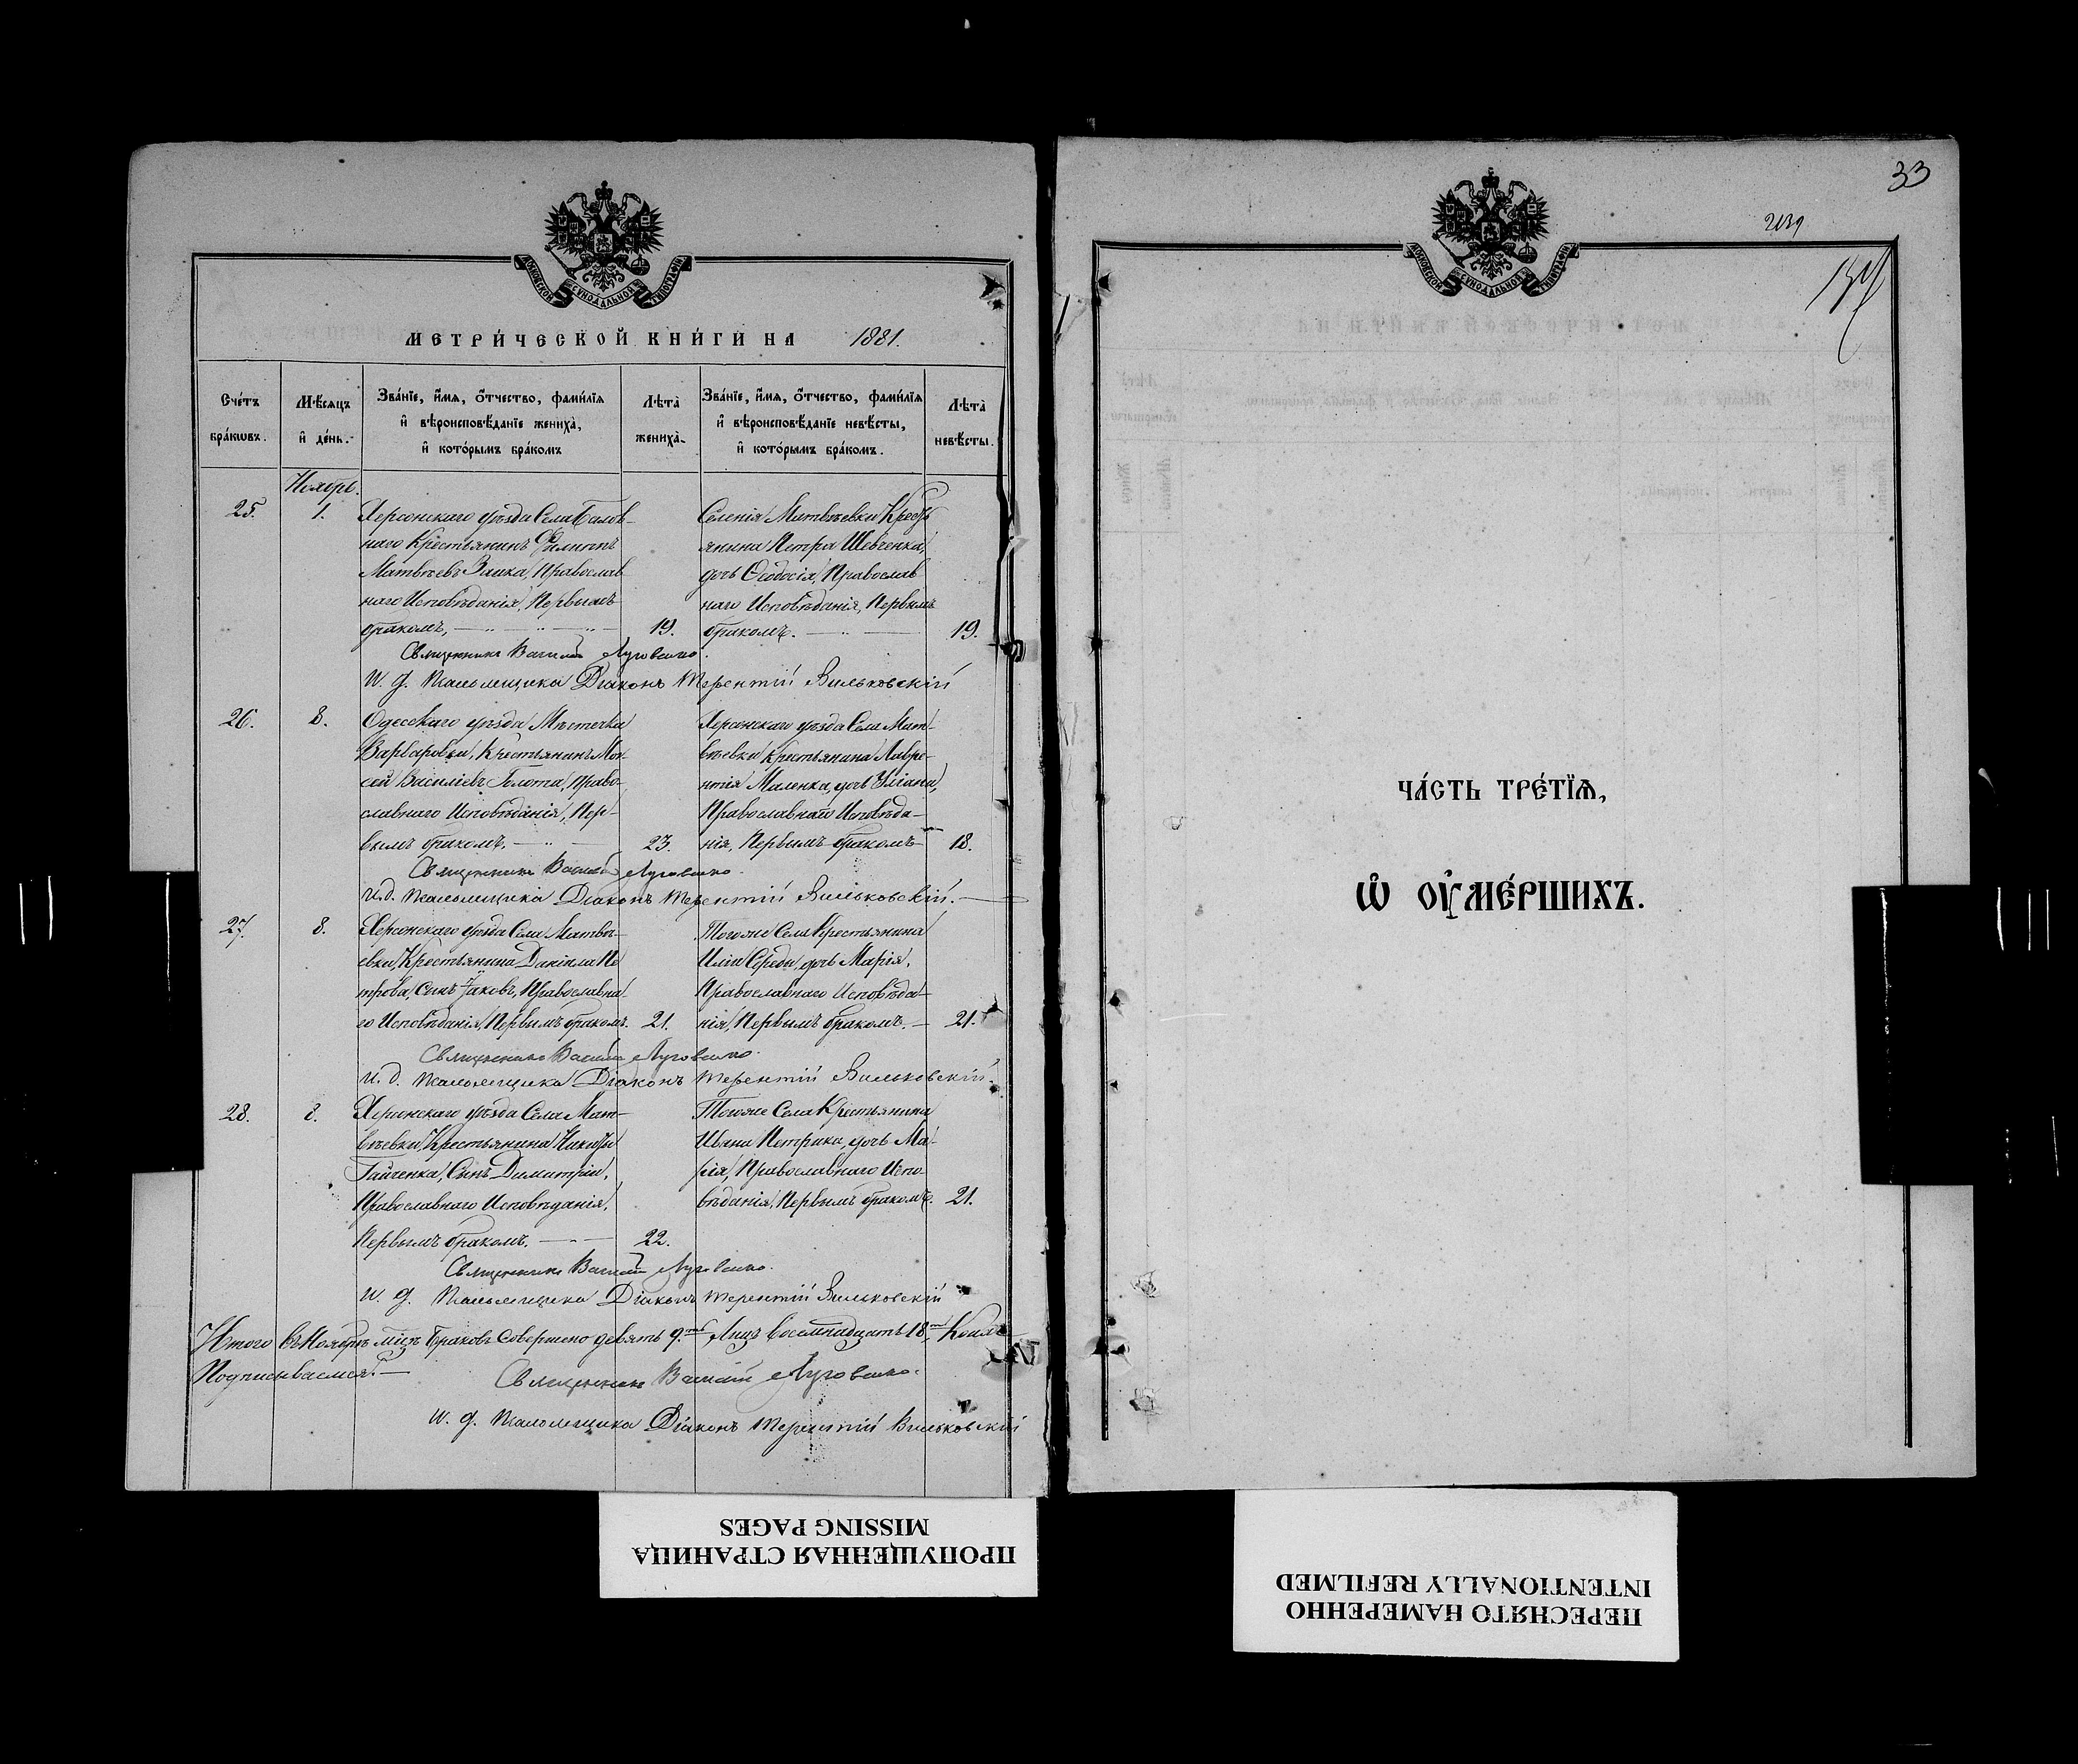 МОСКОВСКОЙ СУНОДАЛЬНОЙ ТИПОГРАФІИ
МЕТРИ́ЧЕСКОЙ КНИ́ГИ НА 1881.
Сче́тъ бра́кωвъ.
Мѣ́сяцъ и҆ де́нь.
Зва́нїе, и҆́мѧ, ѻ҆́тчество, фами́лїѧ и҆ вѣроисповѣ́данїе жениха̀, и҆ кото́рымъ бра́комъ
Лѣта̀ жениха̀.
Зва́нїе, и҆́мѧ, ѻ҆́тчество, фами́лїѧ и҆ вѣроисповѣ́данїе невѣ́сты, и҆ кото́рымъ бра́комъ.
Лѣта̀ невѣ́сты.
Ноябрь.
25. 1.
Херсонскаго уѣзда Села Балов-
наго Крестьянинъ Филиппъ
Матвѣевъ Заика, Православ
наго Исповѣданія, Первымъ
бракомъ, 19.
Селенія Матвѣевки Кресть
янина Петра Шевченка,
дочь Ѳеодосія, Православ
наго Исповѣданія, Первымъ
бракомъ. 19.
Священникъ Василій Луговенко.
И. д. Псаломщика Діаконъ Терентій Вильковскій
26. 8.
Одесскаго уѣзда Мѣстечка
Варваровки, Крестьянинъ Мои-
сей Василіевъ Голота, Право-
славнаго Исповѣданія, Пер-
вымъ бракомъ. 23.
Херсонскаго уѣзда Села Мат-
вѣевки Крестьянина Лавре-
нтія Маленка, дочь Уліана,
Православнаго Исповѣда-
нія, Первымъ бракомъ 18.
Священникъ Василій Луговенко.
И. д. Псаломщика Діаконъ Терентій Вильковскій.
27. 8.
Херсонскаго уѣзда Села Матвѣ-
евки, Крестьянина Даніила Пе
трова, Сынъ Іаковъ, Православна-
го Исповѣданія, Первымъ бракомъ. 21.
Того же Села Крестьянина
Иліи Середы, дочь Марія,
Православнаго Исповѣда-
нія, Первымъ бракомъ. 21.
Священникъ Василій Луговенко.
И. д. Псаломщика Діаконъ Терентій Вильковскій.
28. 8.
Херсонскаго уѣзда Села Мат-
вѣевки, Крестьянина Никиты
Гайченка, Сынъ Димитрій,
Православнаго Исповѣданія,
Первымъ бракомъ. 22.
Того же Села Крестьянина
Ивана Петрика, дочь Ма-
рія, Православнаго Испо-
вѣданія, Первымъ бракомъ. 21.
Священникъ Василій Луговенко.
И. д. Псаломщика Діаконъ Терентій Вильковскій
Итого въ Ноябрѣ мцѣ Браковъ Совершено девять 9. Лицъ восемнадцать 18.
Подписываемся.
Священникъ Василій Луговенко.
И. д. Псаломщика Діаконъ Терентій Вильковскій
ПРОПУЩЕННАЯ СТРАНИЦА
MISSING PAGES
33
МОСКОВСКОЙ СУНОДАЛЬНОЙ ТИПОГРАФІИ
ЧА́СТЬ ТРЕ́ТЇѦ,
Ѽ ОУ҆МЕ́РШИХЪ.
ПЕРЕСНЯТО НАМЕРЕННО
INTENTIONALLY REFILMED